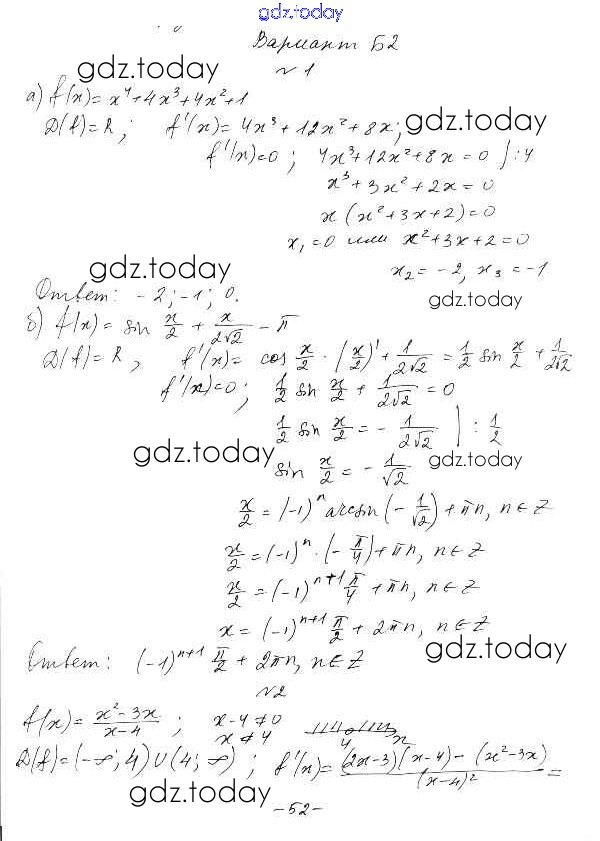 gdz.today
Вариант Б2
gdz.today
№1
а) f(x) = x⁴ + 4x³ + 4x² + 1
D(f) = R ; f'(x) = 4x³ + 12x² + 8x; gdz.today
f'(x) = 0 ; 4x³ + 12x² + 8x = 0 | : 4
x³ + 3x² + 2x = 0
x (x² + 3x + 2) = 0
x₁ = 0 или x² + 3x + 2 = 0
gdz.today
x₂ = -2, x₃ = -1
Ответ: -2; -1; 0. gdz.today
б) f(x) = sin x/2 + x/(2√2) - π
D(f) = R, f'(x) = cos x/2 · (x/2)' + 1/(2√2) = 1/2 sin x/2 + 1/(2√2)
f'(x) = 0 ; 1/2 sin x/2 + 1/(2√2) = 0
1/2 sin x/2 = - 1/(2√2) | : 1/2
gdz.today gdz.today
sin x/2 = - 1/√2
x/2 = (-1)ⁿ arcsin (- 1/√2) + πn, n ∈ Z
x/2 = (-1)ⁿ · (- π/4) + πn, n ∈ Z
x/2 = (-1)ⁿ⁺¹ π/4 + πn, n ∈ Z
x = (-1)ⁿ⁺¹ π/2 + 2πn, n ∈ Z
gdz.today
Ответ: (-1)ⁿ⁺¹ π/2 + 2πn, n ∈ Z
№2
f(x) = (x² - 3x)/(x - 4) ; x - 4 ≠ 0
x ≠ 4 4 x
D(f) = (-∞; 4) ∪ (4; ∞) ; f'(x) = ((2x - 3)(x - 4) - (x² - 3x))/(x - 4)² =
gdz.today
- 52 -